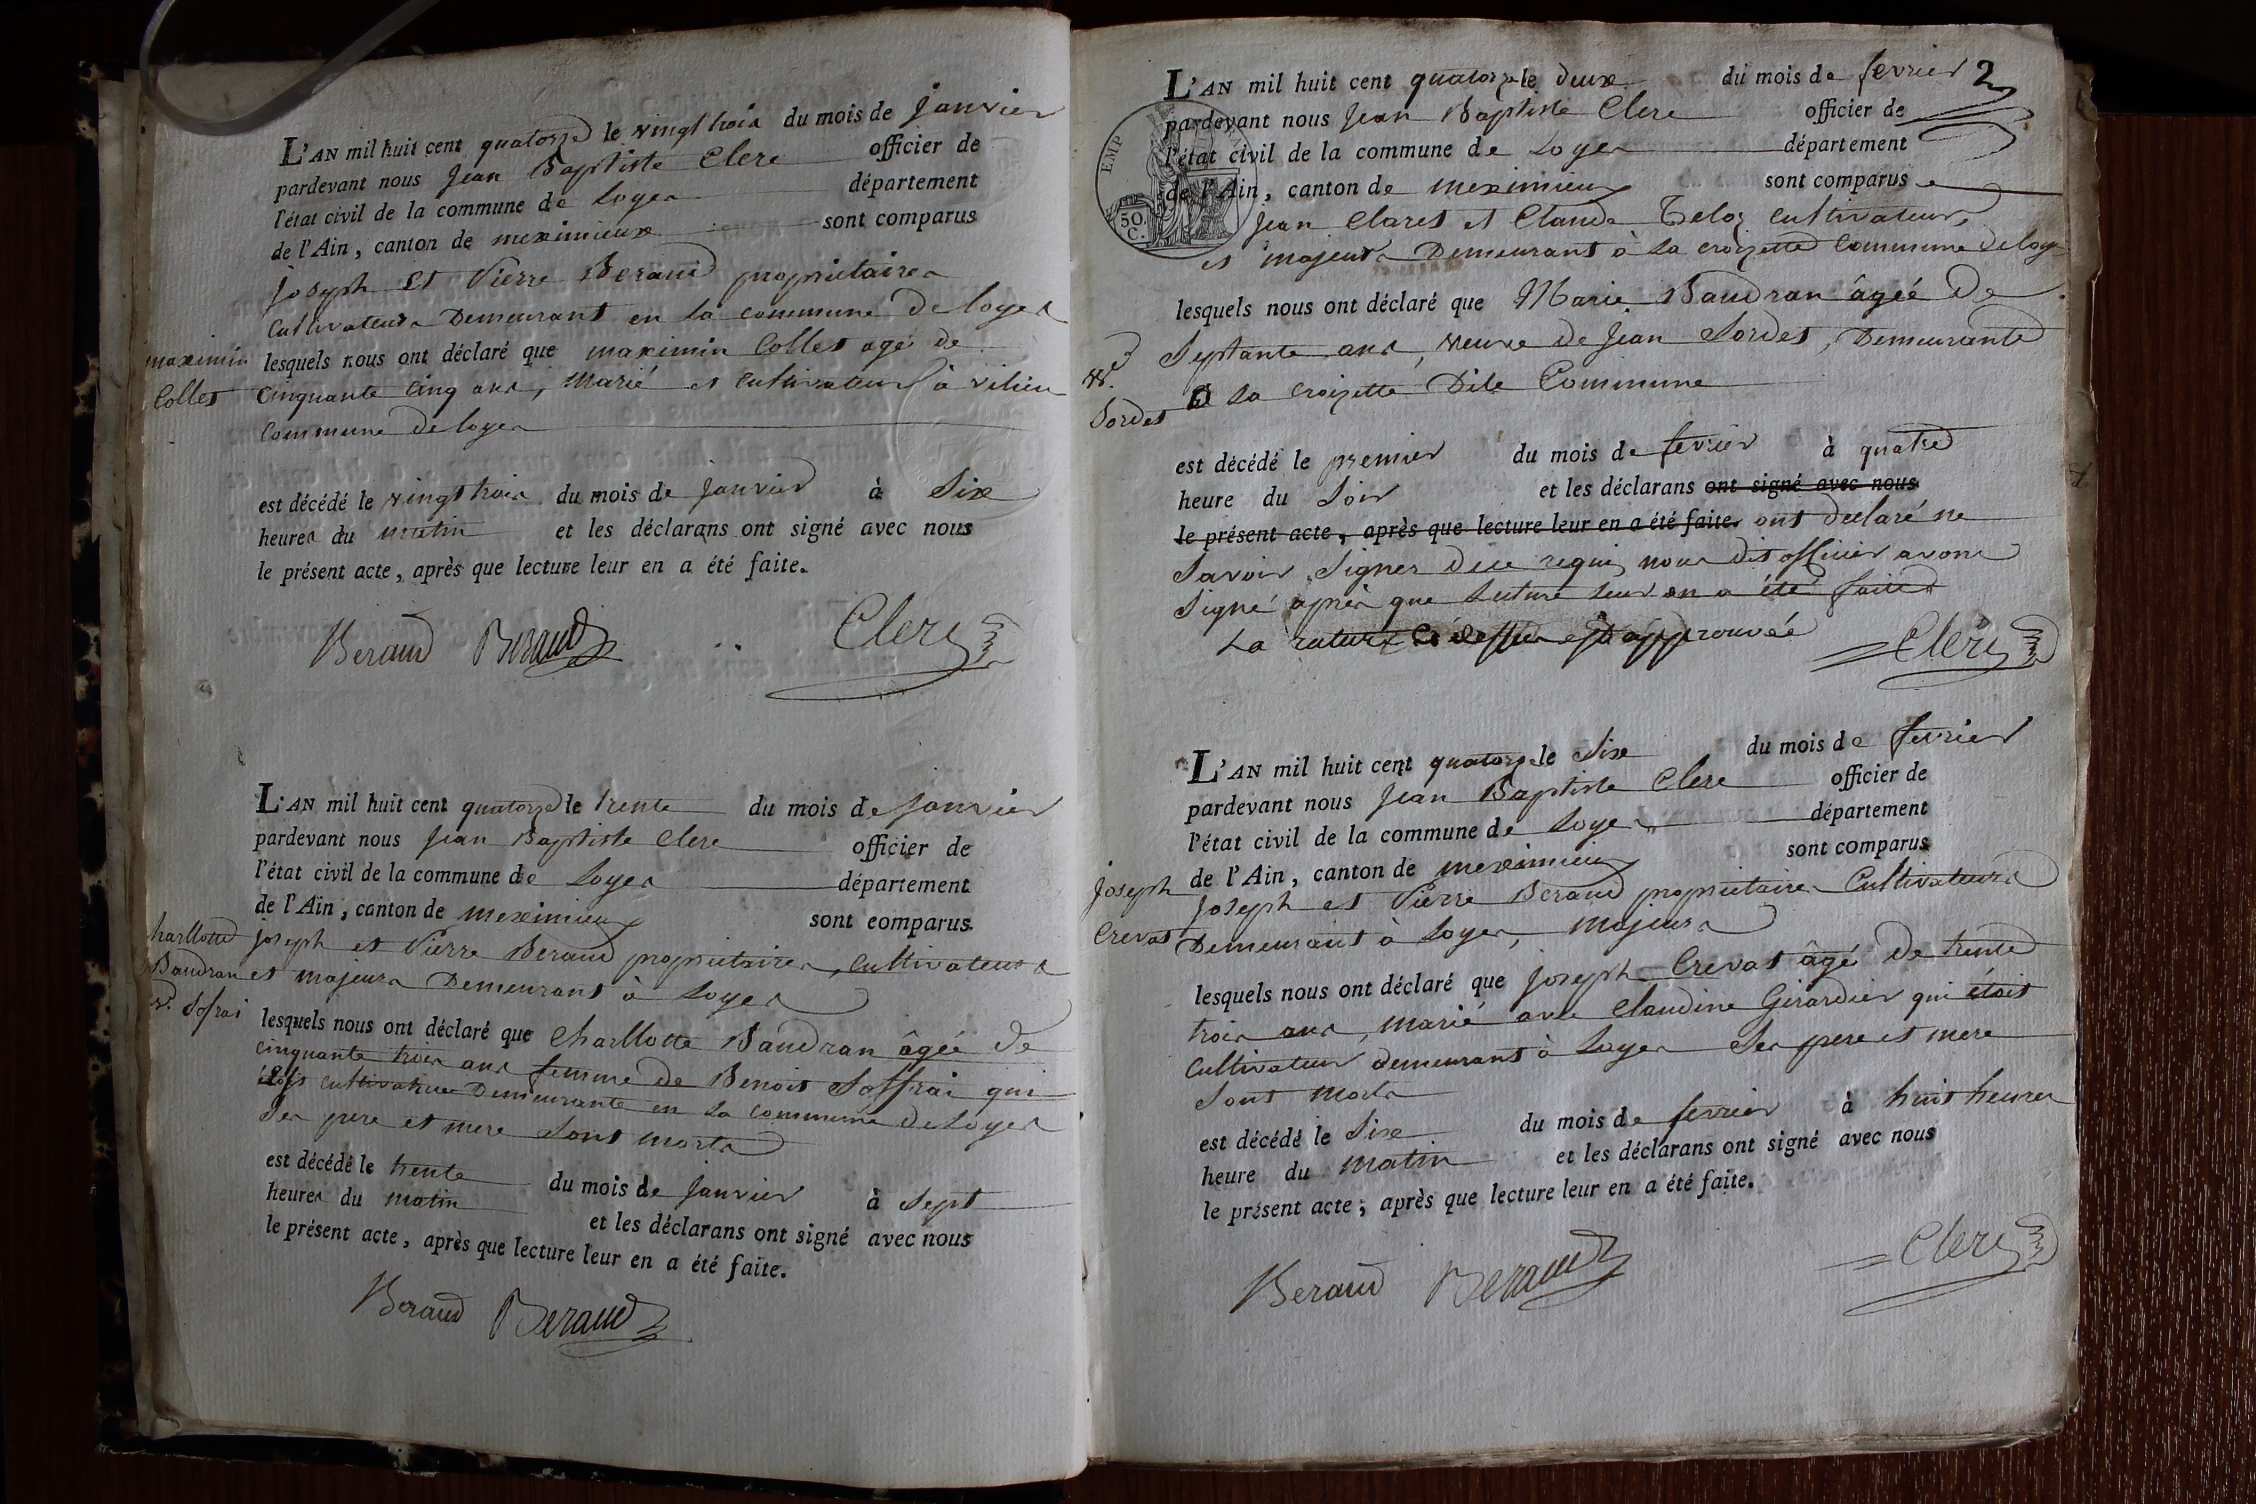 L'AN mil huit cent quatorze le vingt trois du mois de janvier
pardevant nous Jean Baptiste Clerc officier de
l'état civil de la commune de Loyes département
de l'Ain, canton de meximieux sont comparus
joseph et Pierre Beraud proprietaires
Cultivateurs Demeurant en la commune de loyes
lesquels nous ont déclaré que maximin Collet agé de
Cinquante Cinq ans, Marié et Cultivateur à vilieu
Commune de loyes
maximin
Collet
est décédé le vingt trois du mois de janvier à Six
heures du matin et les déclarans ont signé avec nous
le présent acte, après que lecture leur en a été faite.
Beraud Beraud Clerc
L'AN mil huit cent quatorze le trente du mois de janvier
pardevant nous Jean Baptiste Clerc officier de
l'état civil de la commune de Loyes département
de l'Ain, canton de meximieux sont comparus
joseph et Pierre Beraud proprietaires, Cultivateurs
et majeurs Demeurant à Loyes
lesquels nous ont déclaré que Charllotte Baudran âgée de
cinquante trois ans femme de Benoit Soffrai qui
étoit cultivatrice Demeurante en la commune de Loyes
Ses pere et mere Sont morts
harllotte
Baudran
ve. Sofrai
est décédé le trente du mois de janvier à Sept
heures du matin et les déclarans ont signé avec nous
le présent acte, après que lecture leur en a été faite.
Beraud Beraud
2
L'AN mil huit cent quatorze le deux du mois de fevrier
pardevant nous Jean Baptiste Clerc officier de
l'état civil de la commune de Loyes département
de l'Ain, canton de meximieux sont comparus
EMP
50
C.
Jean Claret et Claude Teloz Cultivateurs
et majeurs Demeurant à La croizette Commune de loye
lesquels nous ont déclaré que Marie Baudran âgée de
Septante ans, veuve de Jean Sordet, Demeurante
à La croizette Dite Commune
ve.
Sordet
est décédé le premier du mois de fevrier à quatre
heure du Soir et les déclarans ont signé avec nous
le présent acte, après que lecture leur en a été faite. ont declaré ne
Savoir Signer de ce requis nous dit officier avons
Signé après que lecture leur en a été faite
La rature Ci dessus est approuvée
Clerc
L'AN mil huit cent quatorze le Six du mois de fevrier
pardevant nous Jean Baptiste Clerc officier de
l'état civil de la commune de Loyes département
de l'Ain, canton de meximieux sont comparus
joseph et Pierre Beraud proprietaires Cultivateurs
Demeurant à Loyes, Majeurs
lesquels nous ont déclaré que joseph Crevat âgé de trente
trois ans, marié avec Claudine Girardier qui étoit
Cultivateur demeurant à Loyes Ses pere et mere
Sont Morts
joseph
Crevat
est décédé le Six du mois de fevrier à huit heures
heure du Matin et les déclarans ont signé avec nous
le présent acte; après que lecture leur en a été faite.
Beraud Beraud Clerc